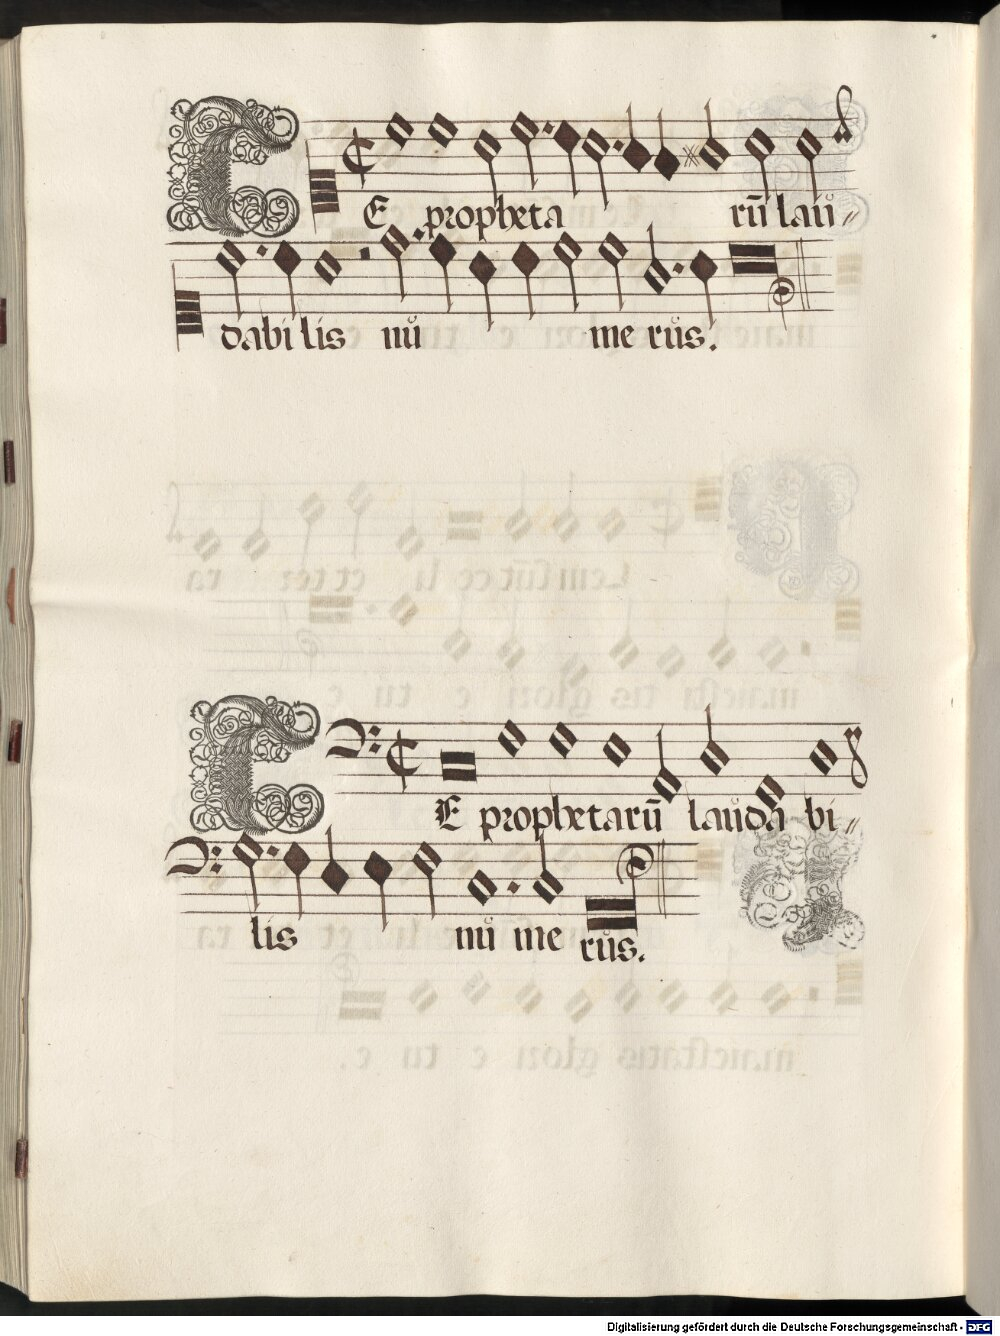 TE propheta rū lau//
dabi lis nu me rus.
TE prophetarū lauda bi//
lis nu me rus.
Digitalisierung gefördert durch die Deutsche Forschungsgemeinschaft - DFG